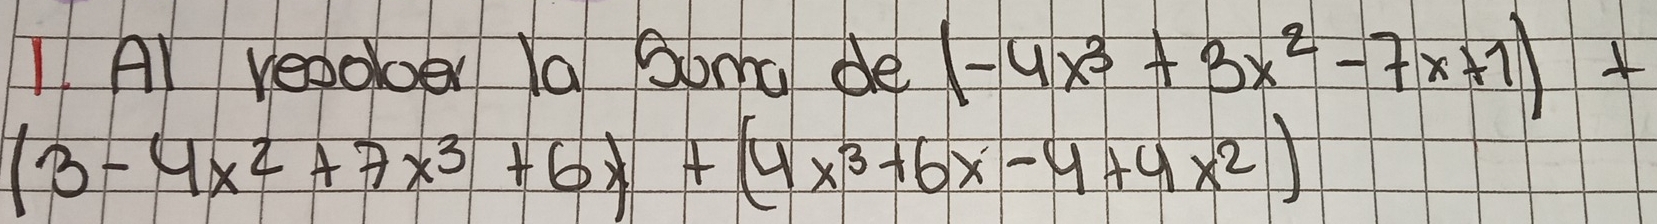 1. Al resolver la Suma de (-4x³ + 3x² - 7x + 1) +
(3 - 4x² + 7x³ + 6x) + (4x³ + 6x - 4 + 4x²)